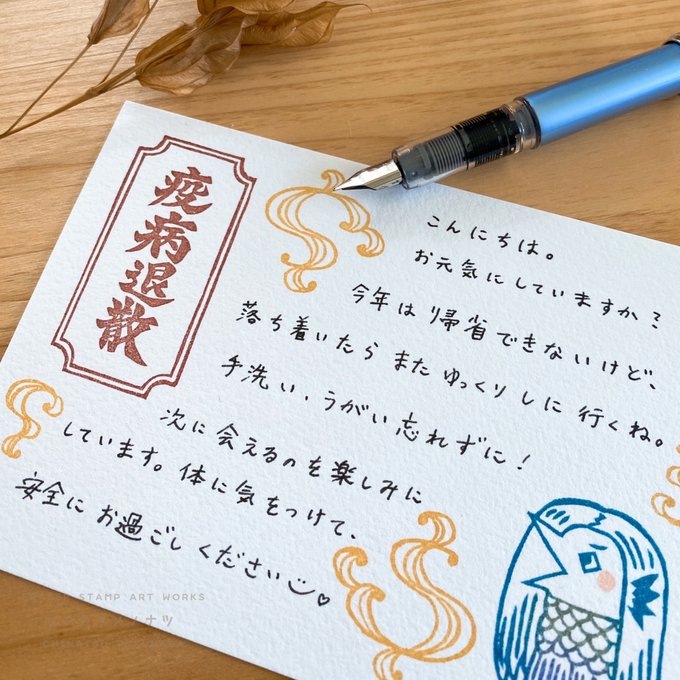 疫病退散
こんにちは。
お元気にしていますか?
今年は帰省できないけど、
落ち着いたらまたゆっくりしに行くね。
手洗い、うがい忘れずに!
次に会えるのを楽しみに
しています。体に気をつけて、
安全にお過ごしください
STAMP ART WORKS